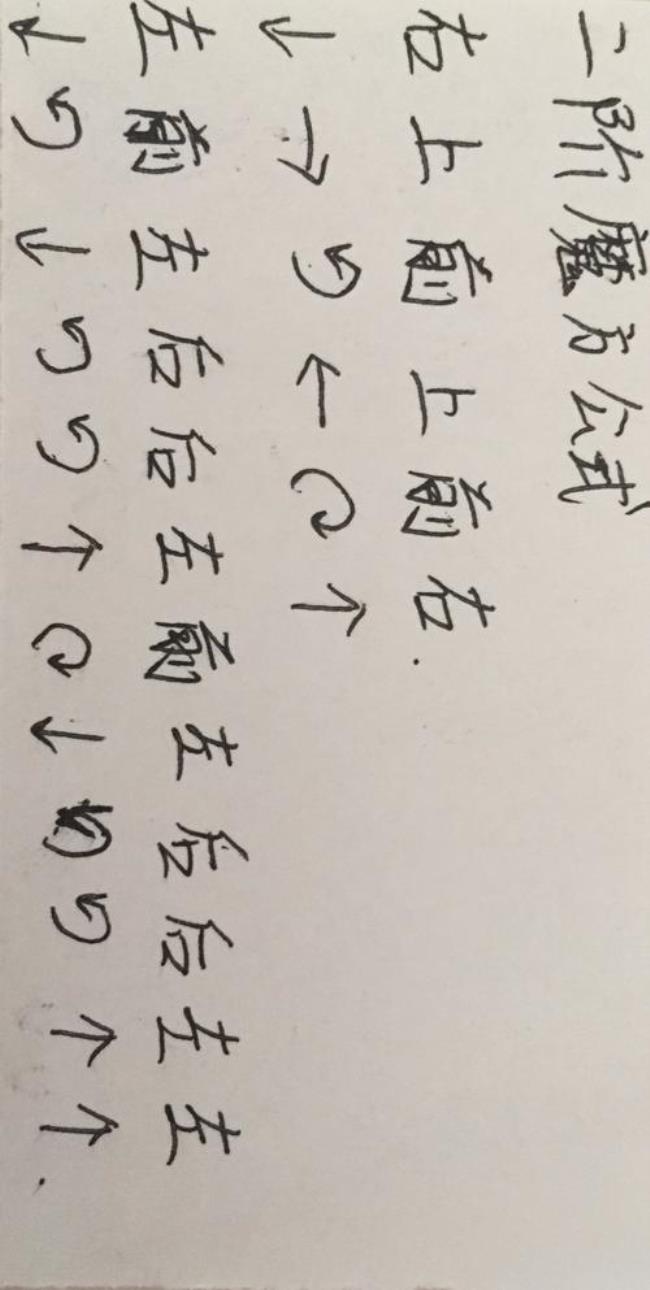 二阶魔方公式
右上前上前右.
↓→↺←↻↑
左前左后后左前左后后左左
↓↺↓↺↺↑↻↓↺↺↑↑.